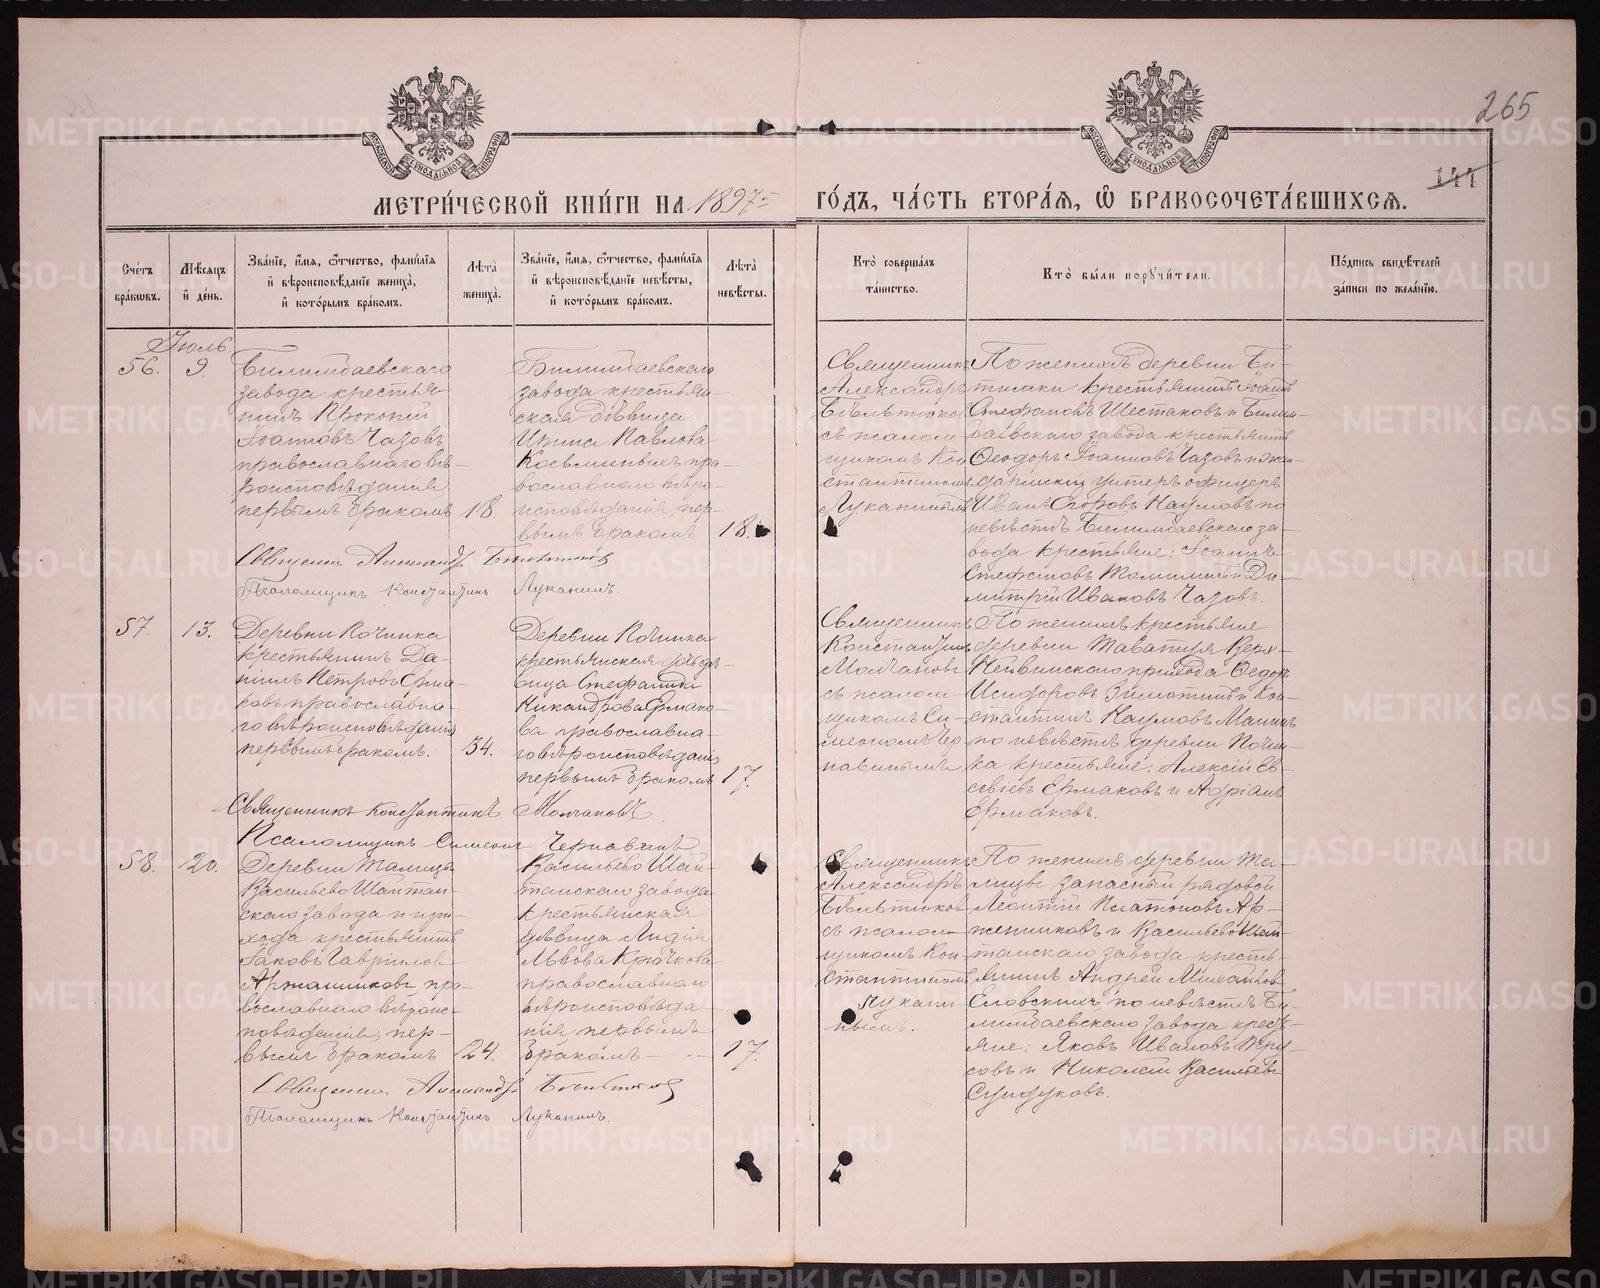 265
144
МЕТРИ́ЧЕСКОЙ КНИ́ГИ НА 1897й ГО́ДЪ, ЧА́СТЬ ВТОРА́Я, Ѡ БРАКОСОЧЕТА́ВШИХСЯ.
Сче́тъ бра́кѡвъ.
Мѣ́сяцъ и де́нь.
Зва́нїе, и́мя, ѻ́тчество, фами́лїя и вѣроисповѣ́данїе жениха̀, и кото́рымъ бра́комъ.
Лѣ́та жениха̀.
Зва́нїе, и́мя, ѻ́тчество, фами́лїя и вѣроисповѣ́данїе невѣ́сты, и кото́рымъ бра́комъ.
Лѣ́та невѣ́сты.
Кто̀ соверша́лъ та́инство.
Кто̀ бы́ли поручи́тели.
По́дпись свидѣ́телей за́писи по жела́нїю.
Іюль
56.
9.
Билимбаевскаго
завода крестья-
нинъ Прокопій
Іоанновъ Чазовъ,
православнаго вѣ-
роисповѣданія
первымъ бракомъ
18
Билимбаевскаго
завода крестьян-
ская дѣвица
Ирина Павлова
православнаго вѣро-
исповѣданія, пер-
вымъ бракомъ
18.
Священникъ
Александръ
Бѣльтюковъ
съ псалом-
щикомъ Кон-
стантиномъ
Луканинымъ
По женихѣ деревни Би-
тимки крестьянинъ Іоаннъ
Стефановъ Шестаковъ и Билим-
баевскаго завода крестьянинъ
Ѳеодоръ Іоанновъ Чазовъ и жан-
дармскій унтеръ офицеръ
Иванъ Егоровъ Наумовъ по
невѣстѣ Билимбаевскаго за-
вода крестьяне: Іоаннъ
Стефановъ Томилинъ и Ди-
митрій Ивановъ Чазовъ.
Священникъ Александръ Бѣльтюковъ
Псаломщикъ Константинъ Луканинъ.
57.
13.
Деревни Починка
крестьянинъ Да-
ніилъ Петровъ Ерма-
ковъ православна-
го вѣроисповѣданія
первымъ бракомъ.
34.
Деревни Починка
крестьянская дѣ-
вица Стефанида
Никандрова Ермако-
ва православна-
го вѣроисповѣданія
первымъ бракомъ
17.
Священникъ
Константинъ
Молчановъ
съ псалом-
щикомъ Си-
меономъ Чер-
навинымъ
По женихѣ крестьяне
деревни Таватуя Верх-
Нейвинскаго прихода Ѳеодоръ
Исидоровъ и Кон-
стантинъ Наумовъ
по невѣстѣ деревни Почин-
ка крестьяне: Алексій Ев-
севіевъ Ермаковъ и Адріанъ
Ермаковъ.
Священникъ Константинъ Молчановъ
Псаломщикъ Симеонъ Чернавинъ
58.
20.
Деревни Талицы
Васильево Шайтан-
скаго завода и при-
хода крестьянинъ
Іаковъ Гавріиловъ
Аржанниковъ, пра-
вославнаго вѣроис-
повѣданія, пер-
вымъ бракомъ
24.
Васильево Шай-
танскаго завода
крестьянская
дѣвица Лидія
Львова Крючкова
православнаго
вѣроисповѣда-
нія, первымъ
бракомъ
17.
Священникъ
Александръ
Бѣльтюковъ
съ псалом-
щикомъ Кон-
стантиномъ
Лукани-
нымъ.
По женихѣ деревни Та-
лицы запасный рядовой
Леонтій Платоновъ Ар-
жанниковъ и Васильево Шай-
танскаго завода кресть-
янинъ Андрей Михайловъ
Еловскихъ, по невѣстѣ Би-
лимбаевскаго завода кресть-
яне: Яковъ Ивановъ
и Николай Васильевъ
Сундуковъ.
Священникъ Александръ Бѣльтюковъ
Псаломщикъ Константинъ Луканинъ.
METRIKI.GASO-URAL.RU